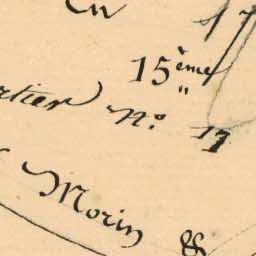 15ème
rtier no. 17
Morin &